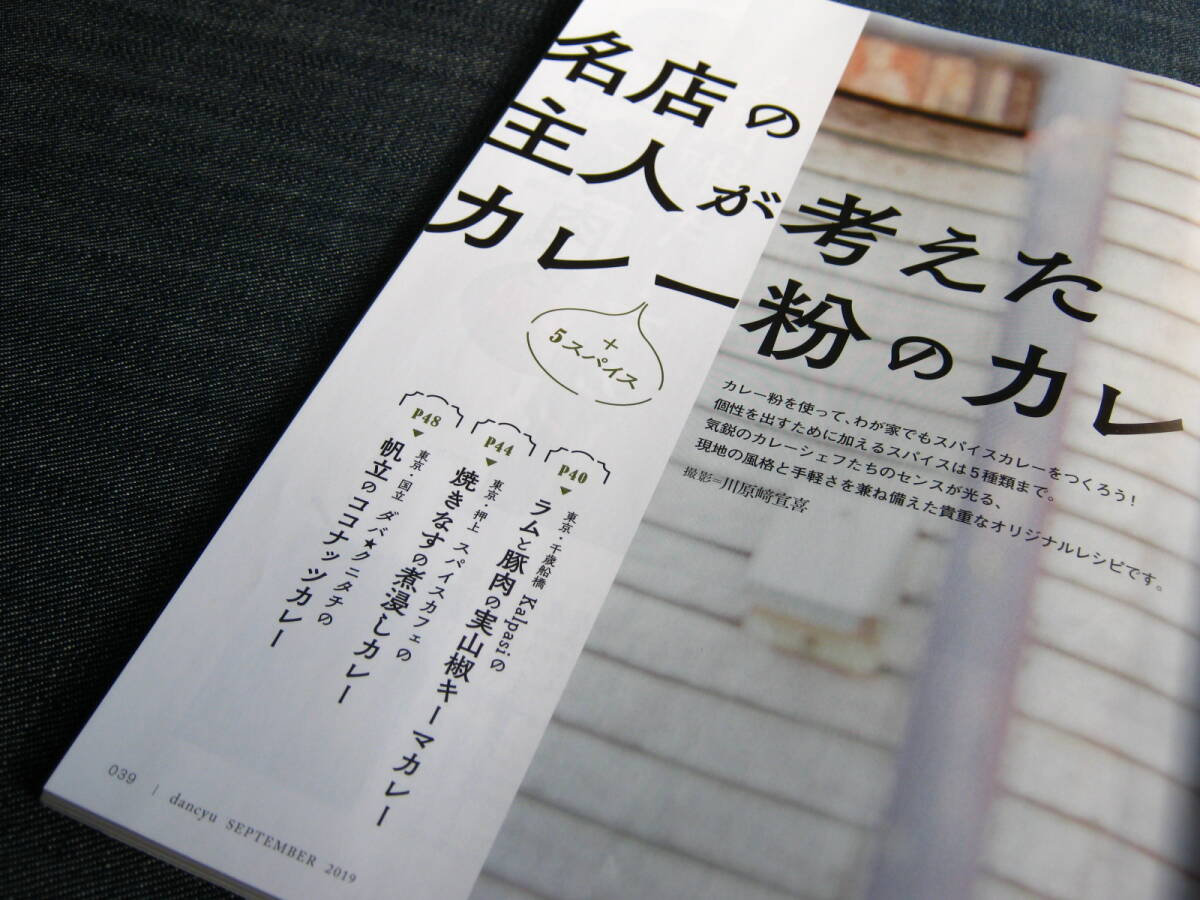 名店の
主人が考えた
カレー粉のカレ
+
5スパイス
カレー粉を使って、わが家でもスパイスカレーをつくろう!
個性を出すために加えるスパイスは5種類まで。
気鋭のカレーシェフたちのセンスが光る、
現地の風格と手軽さを兼ね備えた貴重なオリジナルレシピです。
撮影=川原﨑宣喜
P40
東京・千歳船橋 Kalpasiの
ラムと豚肉の実山椒キーマカレー
P44
東京・押上 スパイスカフェの
焼きなすの煮浸しカレー
P48
東京・国立 ダバ★クニタチの
帆立のココナッツカレー
039 | dancyu SEPTEMBER 2019